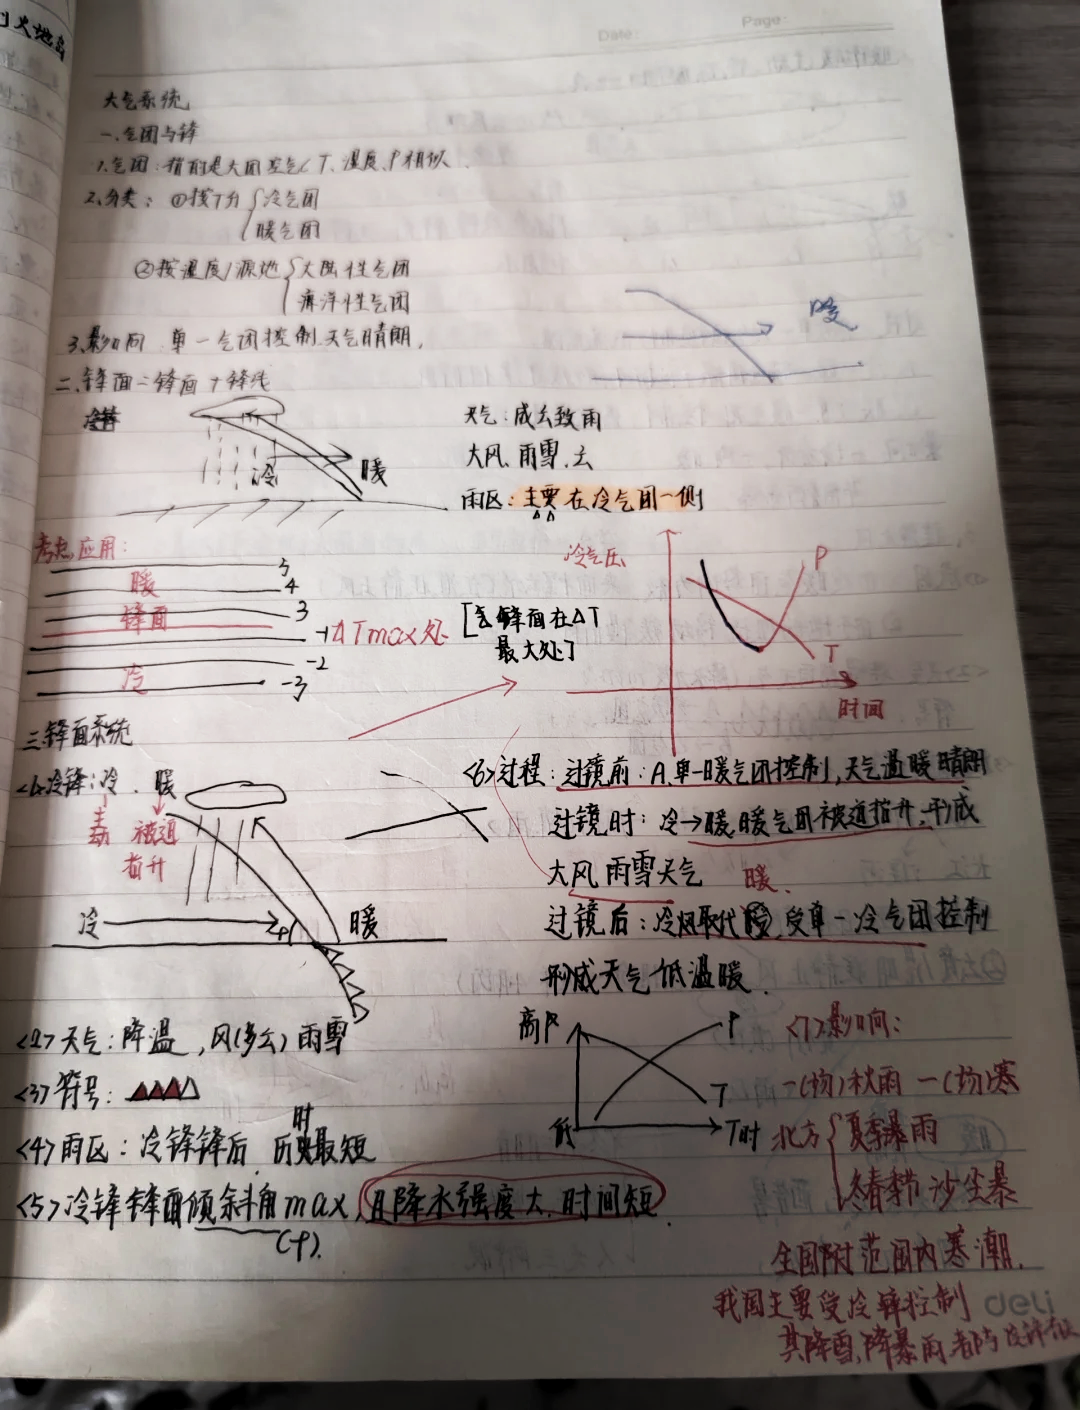 Date:
Page:
大气系统
一、气团与锋
1、气团:指的是大团空气(T、湿度、P相似.
2、分类: ①按T分 冷气团
暖气团
②按湿度/源地 大陆性气团
海洋性气团
3、影响 单一气团控制,天气晴朗,
暖
二、锋面=锋面+锋线
冷锋
天气:成云致雨
冷 暖
大风、雨雪、云
雨区:主要在冷气团一侧
考点应用:
5
暖 4
锋面 3
-1 ΔTmax处
-2
冷 -3
[含锋面在ΔT
最大处]
冷气压
P
T
时间
三、锋面系统
<1>冷锋:冷、暖
主动 被迫
抬升
冷 暖
<2>天气:降温,风(多云)雨雪
<3>符号:
<4>雨区:冷锋锋后 历时最短
<5>冷锋锋面倾斜角max,且降水强度大、时间短.
<6>过程:过镜前:A.单一暖气团控制,天气温暖晴朗
过镜时:冷→暖,暖气团被迫抬升,形成
大风雨雪天气 暖.
过镜后:冷气团取代,受单一冷气团控制
形成天气低温暖.
高 P
T
低 T时
<7>影响:
一(场)秋雨一(场)寒
北方 夏季暴雨
冬春季节沙尘暴
全国附范围内寒潮.
我国主要受冷锋控制
其降雪、降暴雨
deli